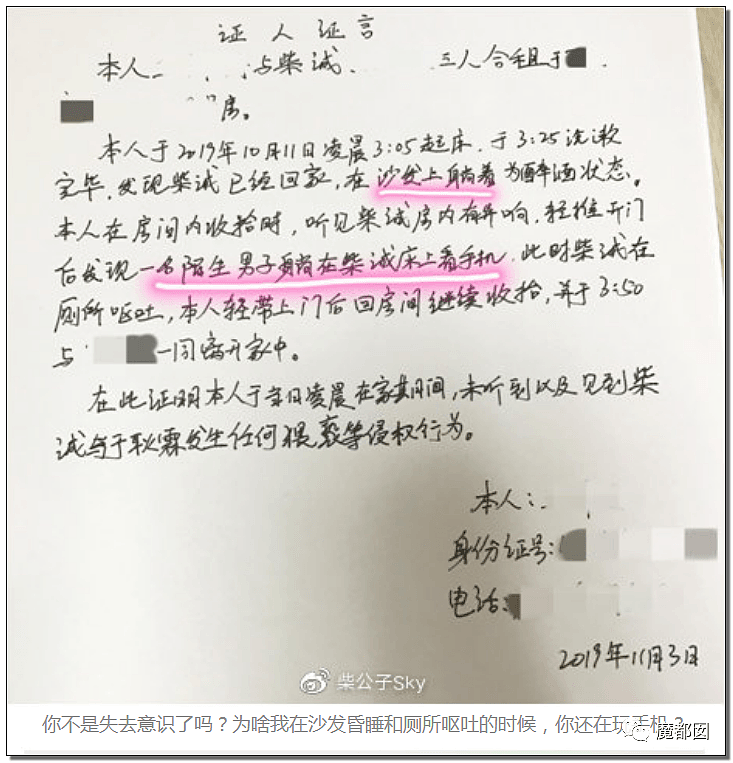 证人证言
本人 与柴诚、 三人合租于
房。
本人于2019年10月11日凌晨3:05起床，于3:25洗漱
完毕，发现柴诚已经回家，在沙发上躺着为醉酒状态。
本人在房间内收拾时，听见柴诚房内有异响，轻推开门
后发现一名陌生男子躺在柴诚床上看手机，此时柴诚在
厕所呕吐，本人轻带上门后回房间继续收拾，并于3:50
与 一同离开家中。
在此证明本人于当日凌晨在家期间，未听到以及见到柴
诚与于耿霖发生任何猥亵等侵权行为。
本人：
身份证号：
电话：
2019年11月3日
柴公子Sky
你不是失去意识了吗？为啥我在沙发昏睡和厕所呕吐的时候，你还在玩手机？
魔都囡